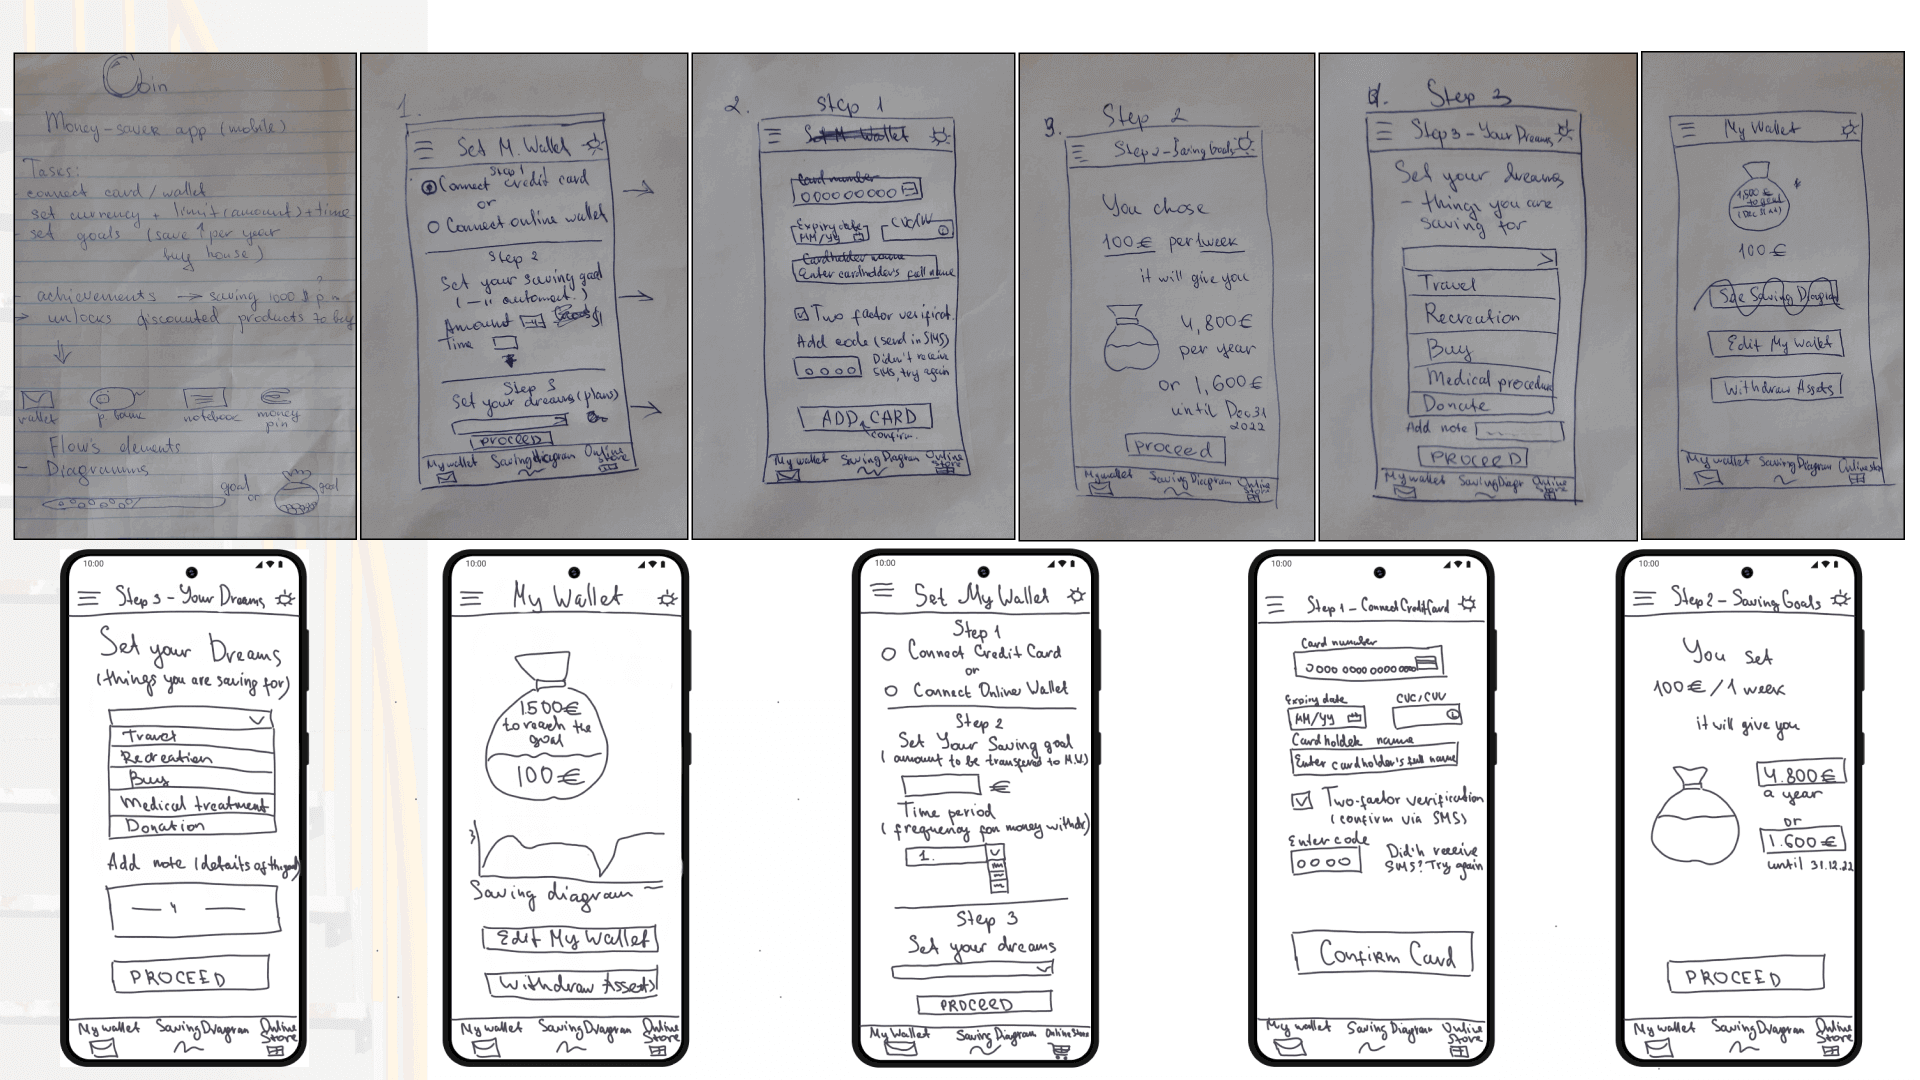 Coin
Money-saver app (mobile)
Tasks:
- connect card / wallet
- set currency + limit (amount) + time
- set goals (save 1 per year
buy house)
?
- achievements → saving 1000 $ p
→ unlocks discounted products to buy
wallet
p
notebook
money pin
Flow's elements
- Diagramms
goal
or
goal
1.
Set M. Wallet
Step 1
Connect credit card
or
Connect online wallet
Step 2
Set your saving goal
automat.)
Amount
Time
Step 3
Set your dreams (plans)
PROCEED
My wallet
Saving Diagram
Online Store
2.
Step 1
Set M. Wallet
Card number
000000000
Expiry date
MM/YY
CVC/CVV
Cardholder name
Enter cardholders full name
Two factor verificat.
Add code (send in SMS)
0000
Didn't receive
SMS, try again
ADD CARD
confirm.
My wallet
Saving Diagram
Online Store
3.
Step 2
Step 2 - Saving Goals
You chose
100 € per 1 week
it will give you
4,800 €
per year
or 1,600 €
until Dec 31
2022
proceed
My wallet
Saving Diagram
Online Store
4.
Step 3
Step 3 - Your Dreams
Set your dreams
- things you are
saving for
Travel
Recreation
Buy
Medical procedure
Donate
Add note
PROCEED
My wallet
Saving Diagr
Online Store
My Wallet
1,500 €
to goal
(Dec 31
100 €
See Saving Diagram
Edit My Wallet
Withdraw Assets
My wallet
Saving Diagram
Online store
10:00
Step 3 - Your Dreams
Set your Dreams
(things you are saving for)
Travel
Recreation
Buy
Medical treatment
Donation
Add note (details of the goal)
PROCEED
My wallet
Saving Dvagram
Online Store
10:00
My Wallet
1500 €
to reach the
goal
100 €
Saving diagram
Edit My Wallet
Withdraw Assets
My wallet
Saving Dvagram
Online Store
10:00
Set My Wallet
Step 1
Connect Credit Card
or
Connect Online Wallet
Step 2
Set Your Saving goal
(amount to be transfered to M.W.)
€
Time period
(frequency for money withdr)
1.
Step 3
Set your dreams
PROCEED
My Wallet
Saving Diagram
Online Store
10:00
Step 1 - Connect Credit Card
Card number
0000 0000 00000000
Expiry date
MM/YY
CVC/CVV
Cardholder name
Enter cardholder's full name
Two-factor verification
(confirm via SMS)
Enter code
0000
Did'n receive
SMS? Try again
Confirm Card
My wallet
Saving Diagram
Online Store
10:00
Step 2 - Saving Goals
You set
100 € / 1 week
it will give you
4.800 €
a year
or
1.600 €
until 31.12.22
PROCEED
My wallet
Saving Dvagram
Online Store